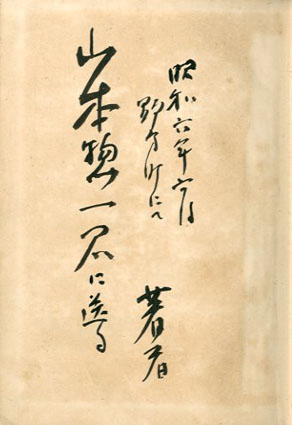 昭和六年六月
野方町にて
著者
山本惣一君に送る